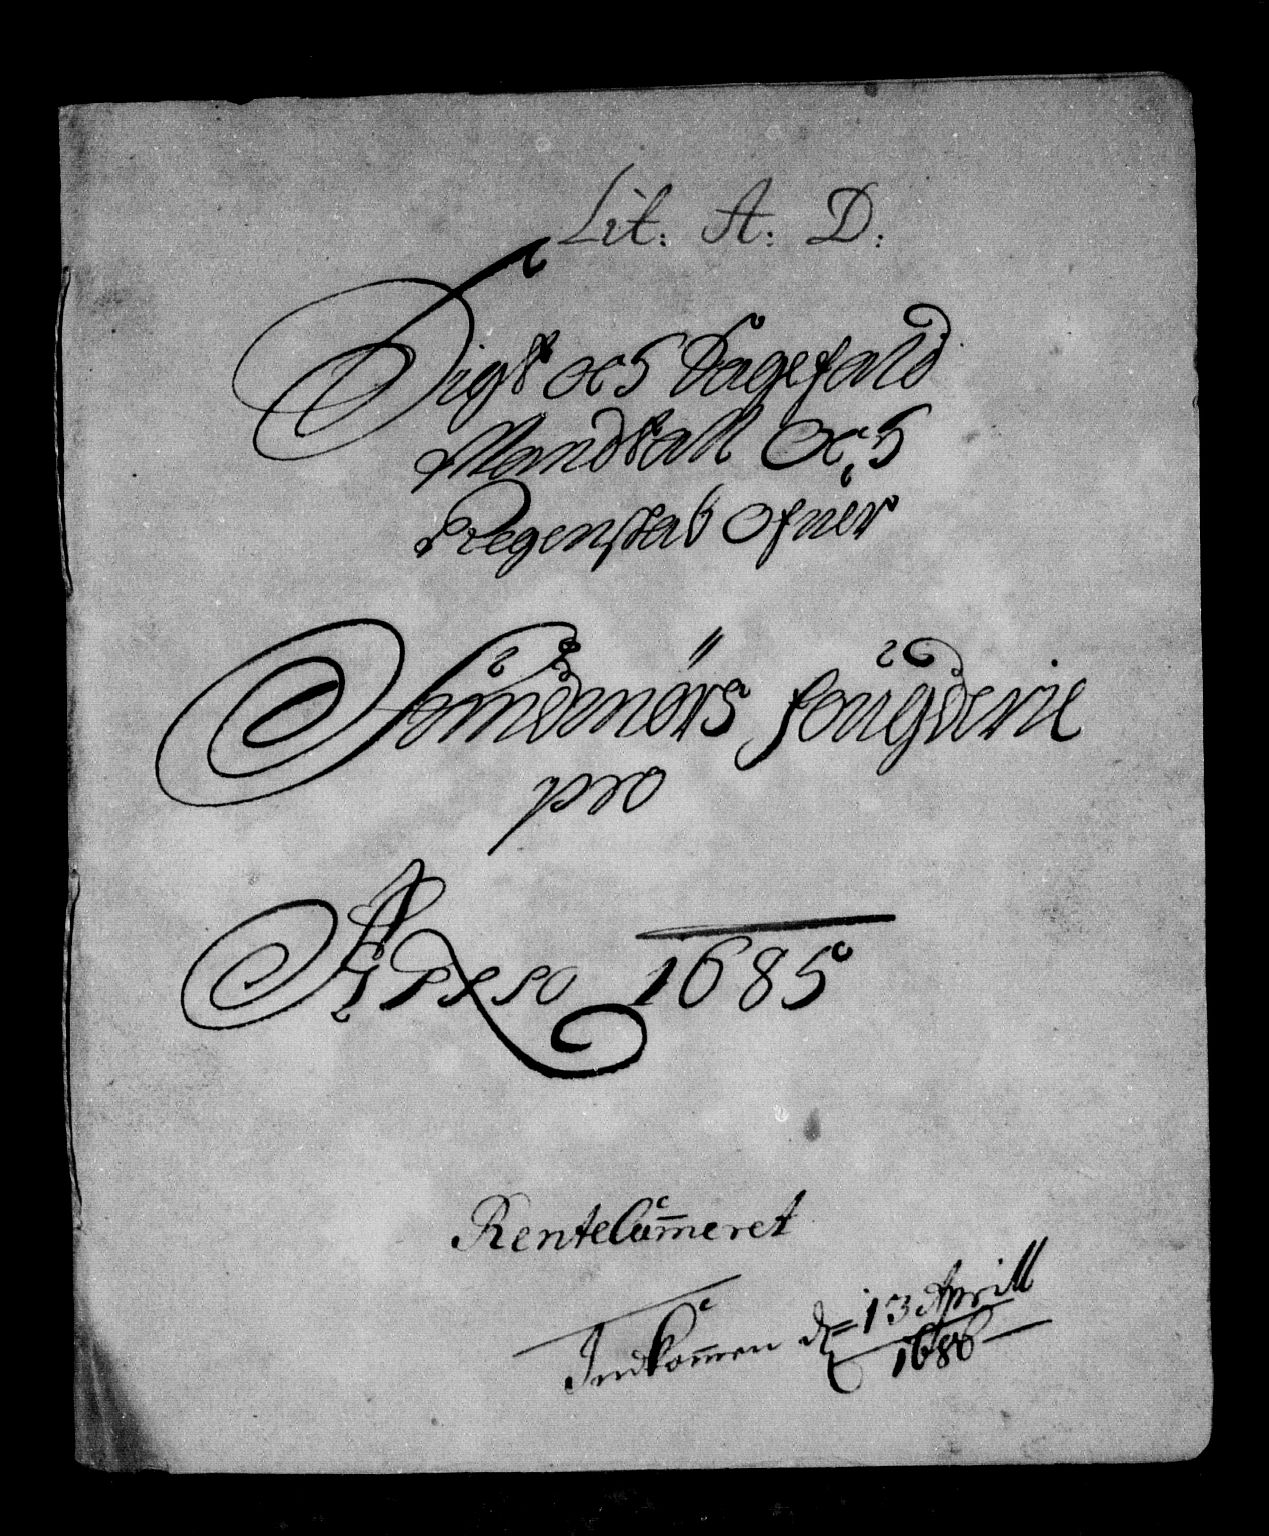 Lit: A: D:
Sigt och Sagefald
Mandtall Och
Regenskab Ofuer
Sundmørs fougderie
pro
Anno 1685
Rentecam̄eret
Indkom̄en d= 13 Aprill
1686